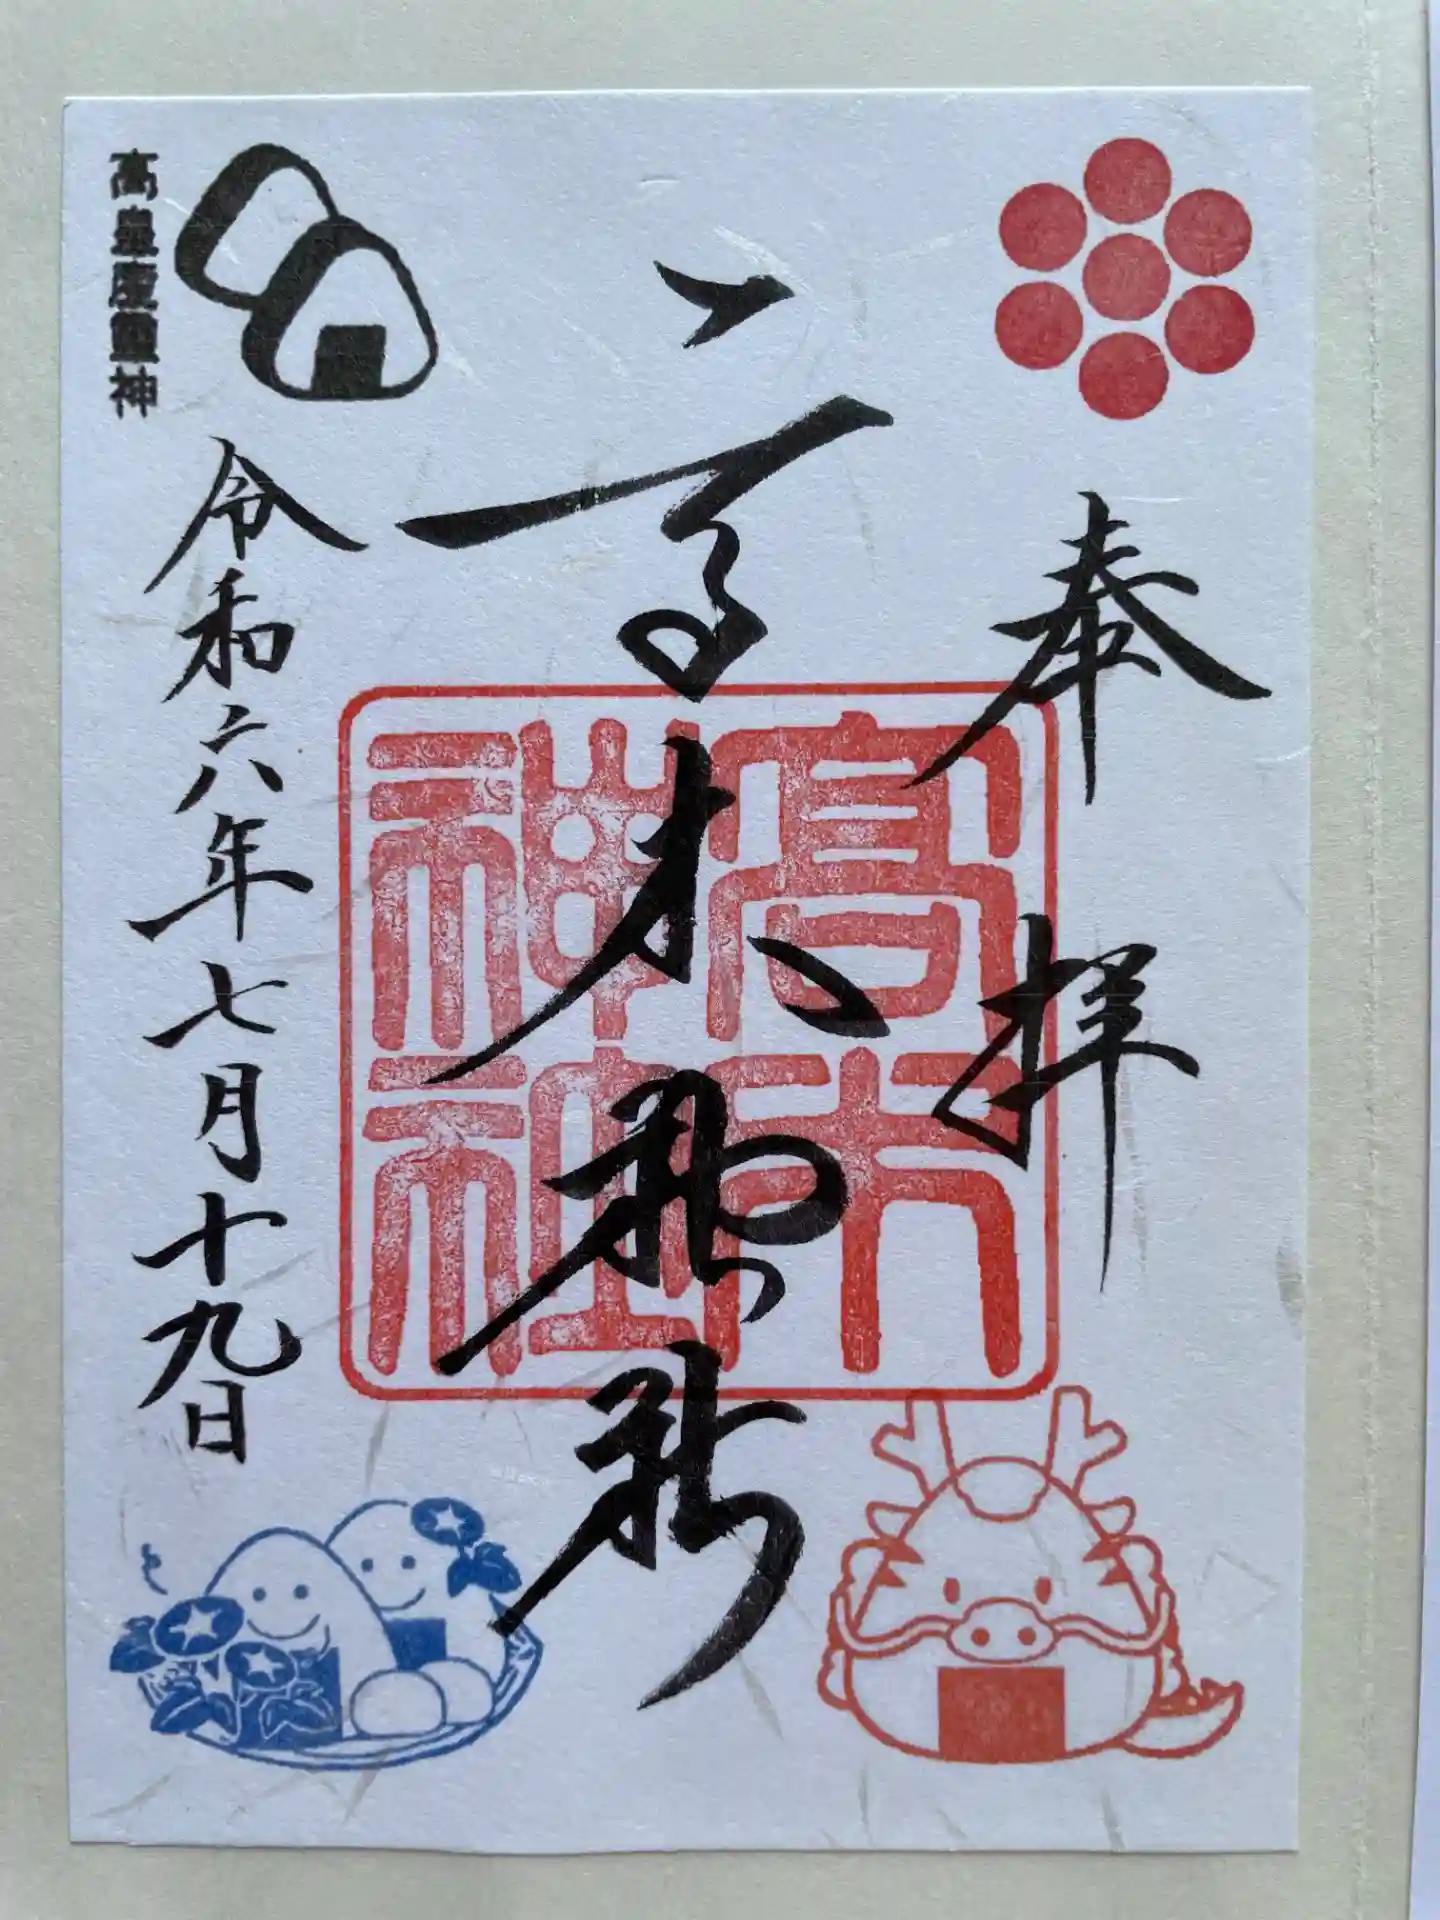 奉拝
高木神社
高木神社
令和六年七月十九日
高皇産霊神